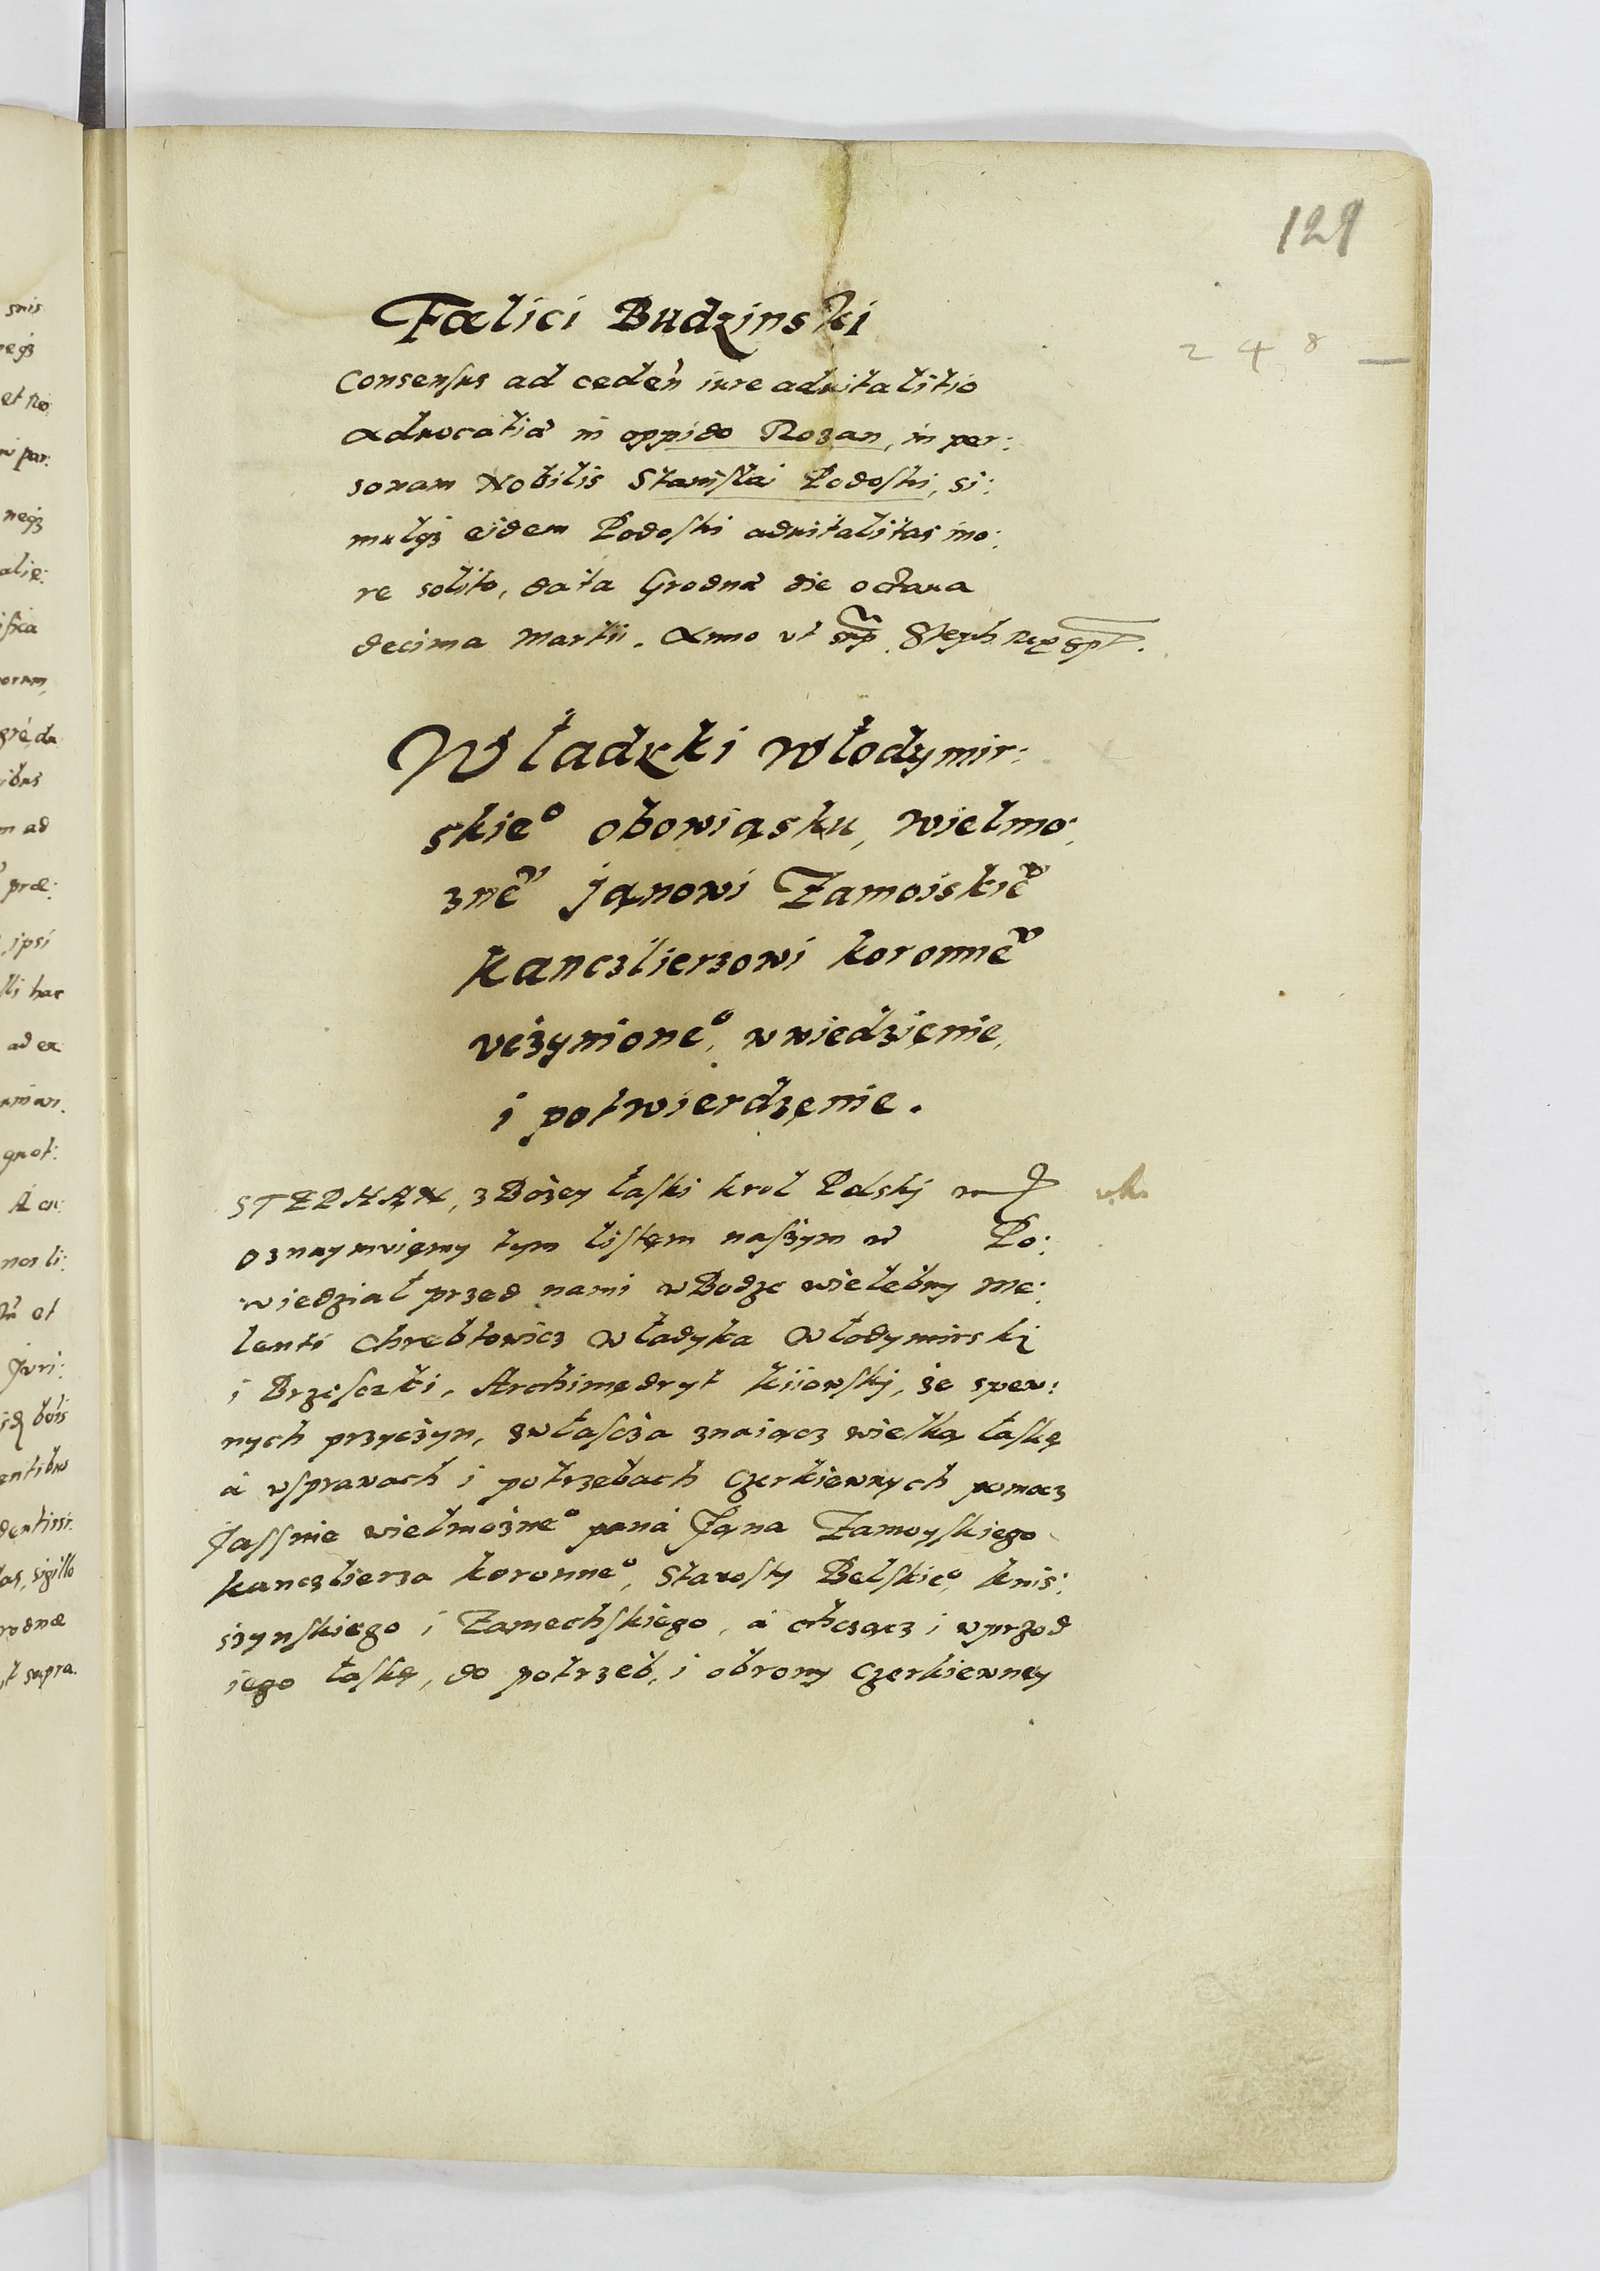 129
248
Fœlici Budzinski
Consensus ad cedeň iure aduitalitio
Aduocatiã in oppido Rozan, in per:
sonam Nobilis Stanislai Podoski, si:
mulqз eidem Podoski aduitalitas mo:
re solito, data Grodnæ die octaua
decima Martii. Anno vt sup. Steph Rex spt.
Władyki Włodymir:
skie° obowiąsku, wielmo:
znē Janowi Zamoiskiē
kanczlierzowi koronnē
vczynione°, wwiedzięnie,
i potwierdzęnie.
STEPHAN, z Bożey łaski krol Polskj
oznaymuięmy tym listęm naszym w Po:
wiedział przed nami wBodze wielebny Me:
lenti Chrebtowicz Władyka Włodymirskj
i Brzesczki, Archimędryt kiiowskj, że spew:
nych przyczyn, zwłascza znaiącz wielką łaskę
a wsprawach i potrzebach Czerkiewnych pomocz
Jassnie wielmożne° pana Jana Zamoyskiego
kanczlierza koronne°, Starosty Belskie°, knis:
szynskiego i Zamechskiego, a chczącz i wprzod
iego łaskę, do potrzeb, i obrony Czerkiewnęy
snis
negз
et no:
par:
negз
alię:
orum,
ibus
m ad
præ:
ipsi
lli hac
ad ex
gnot:
nos li:
et
Juri:
entibus
dentissi:
as, sigillo
rodnæ
t supra.